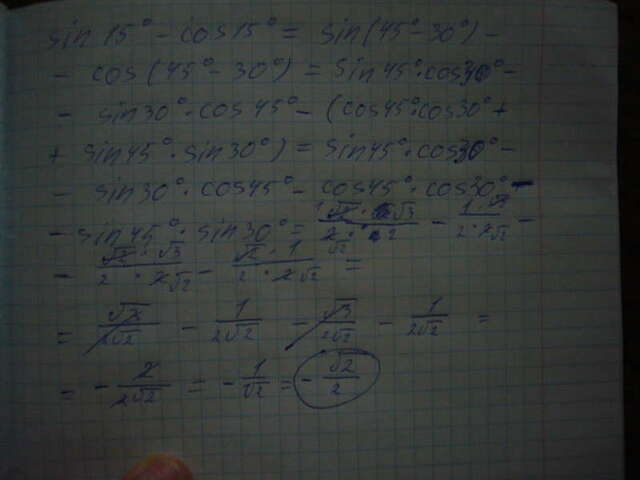 sin 15° - cos 15° = sin(45° - 30°) -
- cos(45° - 30°) = sin45°·cos30° -
- sin30°·cos45° - (cos45°·cos30° +
+ sin45°·sin30°) = sin45°·cos30° -
- sin30°·cos45° - cos45°·cos30° -
- sin45°·sin30° = √2·√3/2·2 - 1·√2/2·2√2 -
- √2·√3/2·2√2 - √2·1/2·2√2 =
= √3/2√2 - 1/2√2 - √3/2√2 - 1/2√2 =
= - 2/2√2 = - 1/√2 = - √2/2